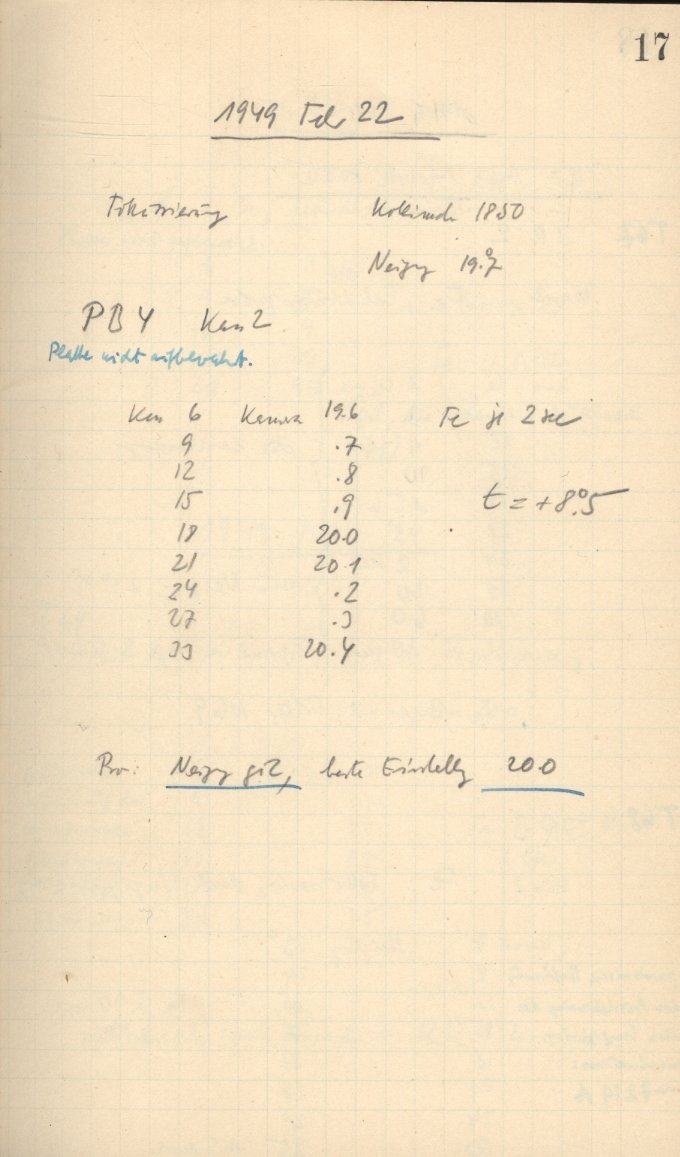 17
1949 Feb 22
Fokussierung Kollimator 1850
Neigung 19.°7
PB4 Kass 2
Platte nicht aufbewahrt.
Kass 6 Kamera 19.6 Fe je 2 sec
9 .7
12 .8
15 .9 t = +8°.5
18 20.0
21 20.1
24 .2
27 .3
33 20.4
Neigung gut, beste Einstellg 20.0